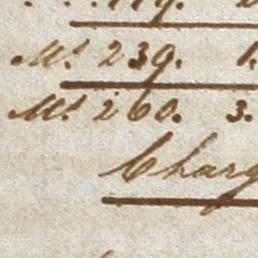 Mˢ. 239. 1.
Mˢ. 260. 3.
Charg